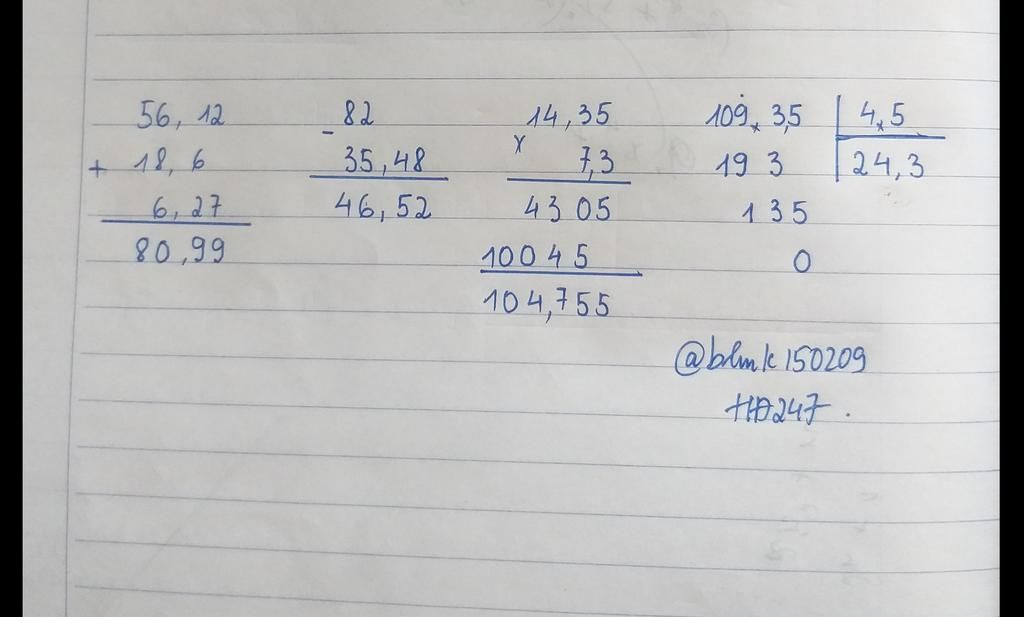 56,12 - 82 14,35 109,3,5 4,5
+ 18,6 35,48 x 7,3 19 3 24,3
6,27 46,52 4305 135
80,99 10045 0
104,755
@blmk150209
HD247.